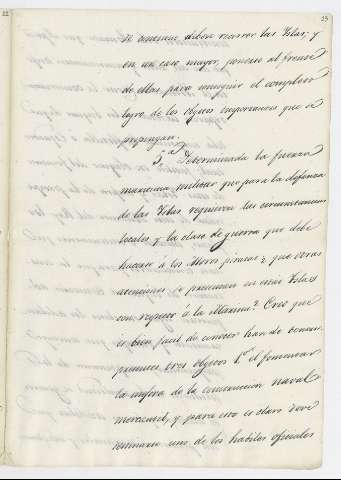 22
23
de cincuenta deberá recorrer las Yslas; y
en un caso mayor, ponerse al frente
de ellas para conseguir el completo
logro de los objetos importantes que se
propongan.
5.ª Determinada la fuerza
maritima militar que para la defensa
de las Yslas requieren las circunstancias
locales y la clase de guerra que debe
hacerse á los Moros piratas; ¿que otras
atenciones se presentan en estas Yslas
con respecto á la Marina? Creo que
es bien facil de conocer han de
tres objetos 1.º el fomentar
la mejora de la construccion naval
mercantil, y para esto es claro debe
uno de los habiles oficiales